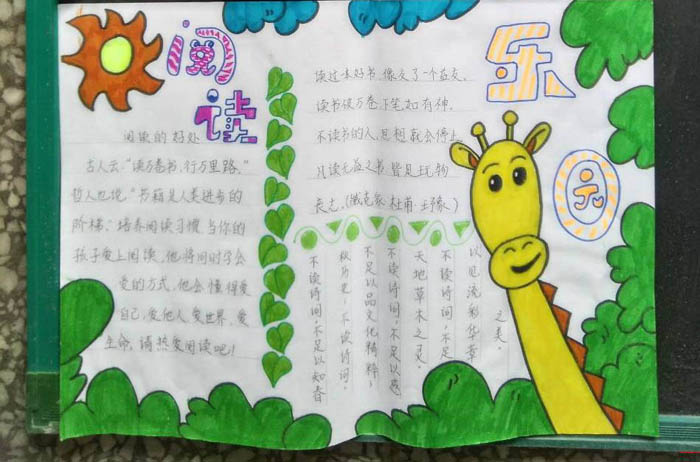 阅读乐园
阅读的好处
古人云:“读万卷书,行万里路。”
哲人也说“书籍是人类进步的
阶梯”、培养阅读习惯,当你的
孩子爱上阅读,他将同时学会
爱的方式,他会懂得爱
自己,爱他人,爱世界,爱
生命,请热爱阅读吧!
读过一本好书,像交了一个益友。
读书破万卷,下笔如有神。
不读书的人,思想就会停止。
凡读无益之书,皆是玩物
丧志。(臧克家、杜甫、王豫)
不读诗词,不足以知春
秋历史,不读诗词,
不足以品文化精粹,
不读诗词,不足以感
天地草木之灵。
不读诗词,不足
以见流彩华章
之美。